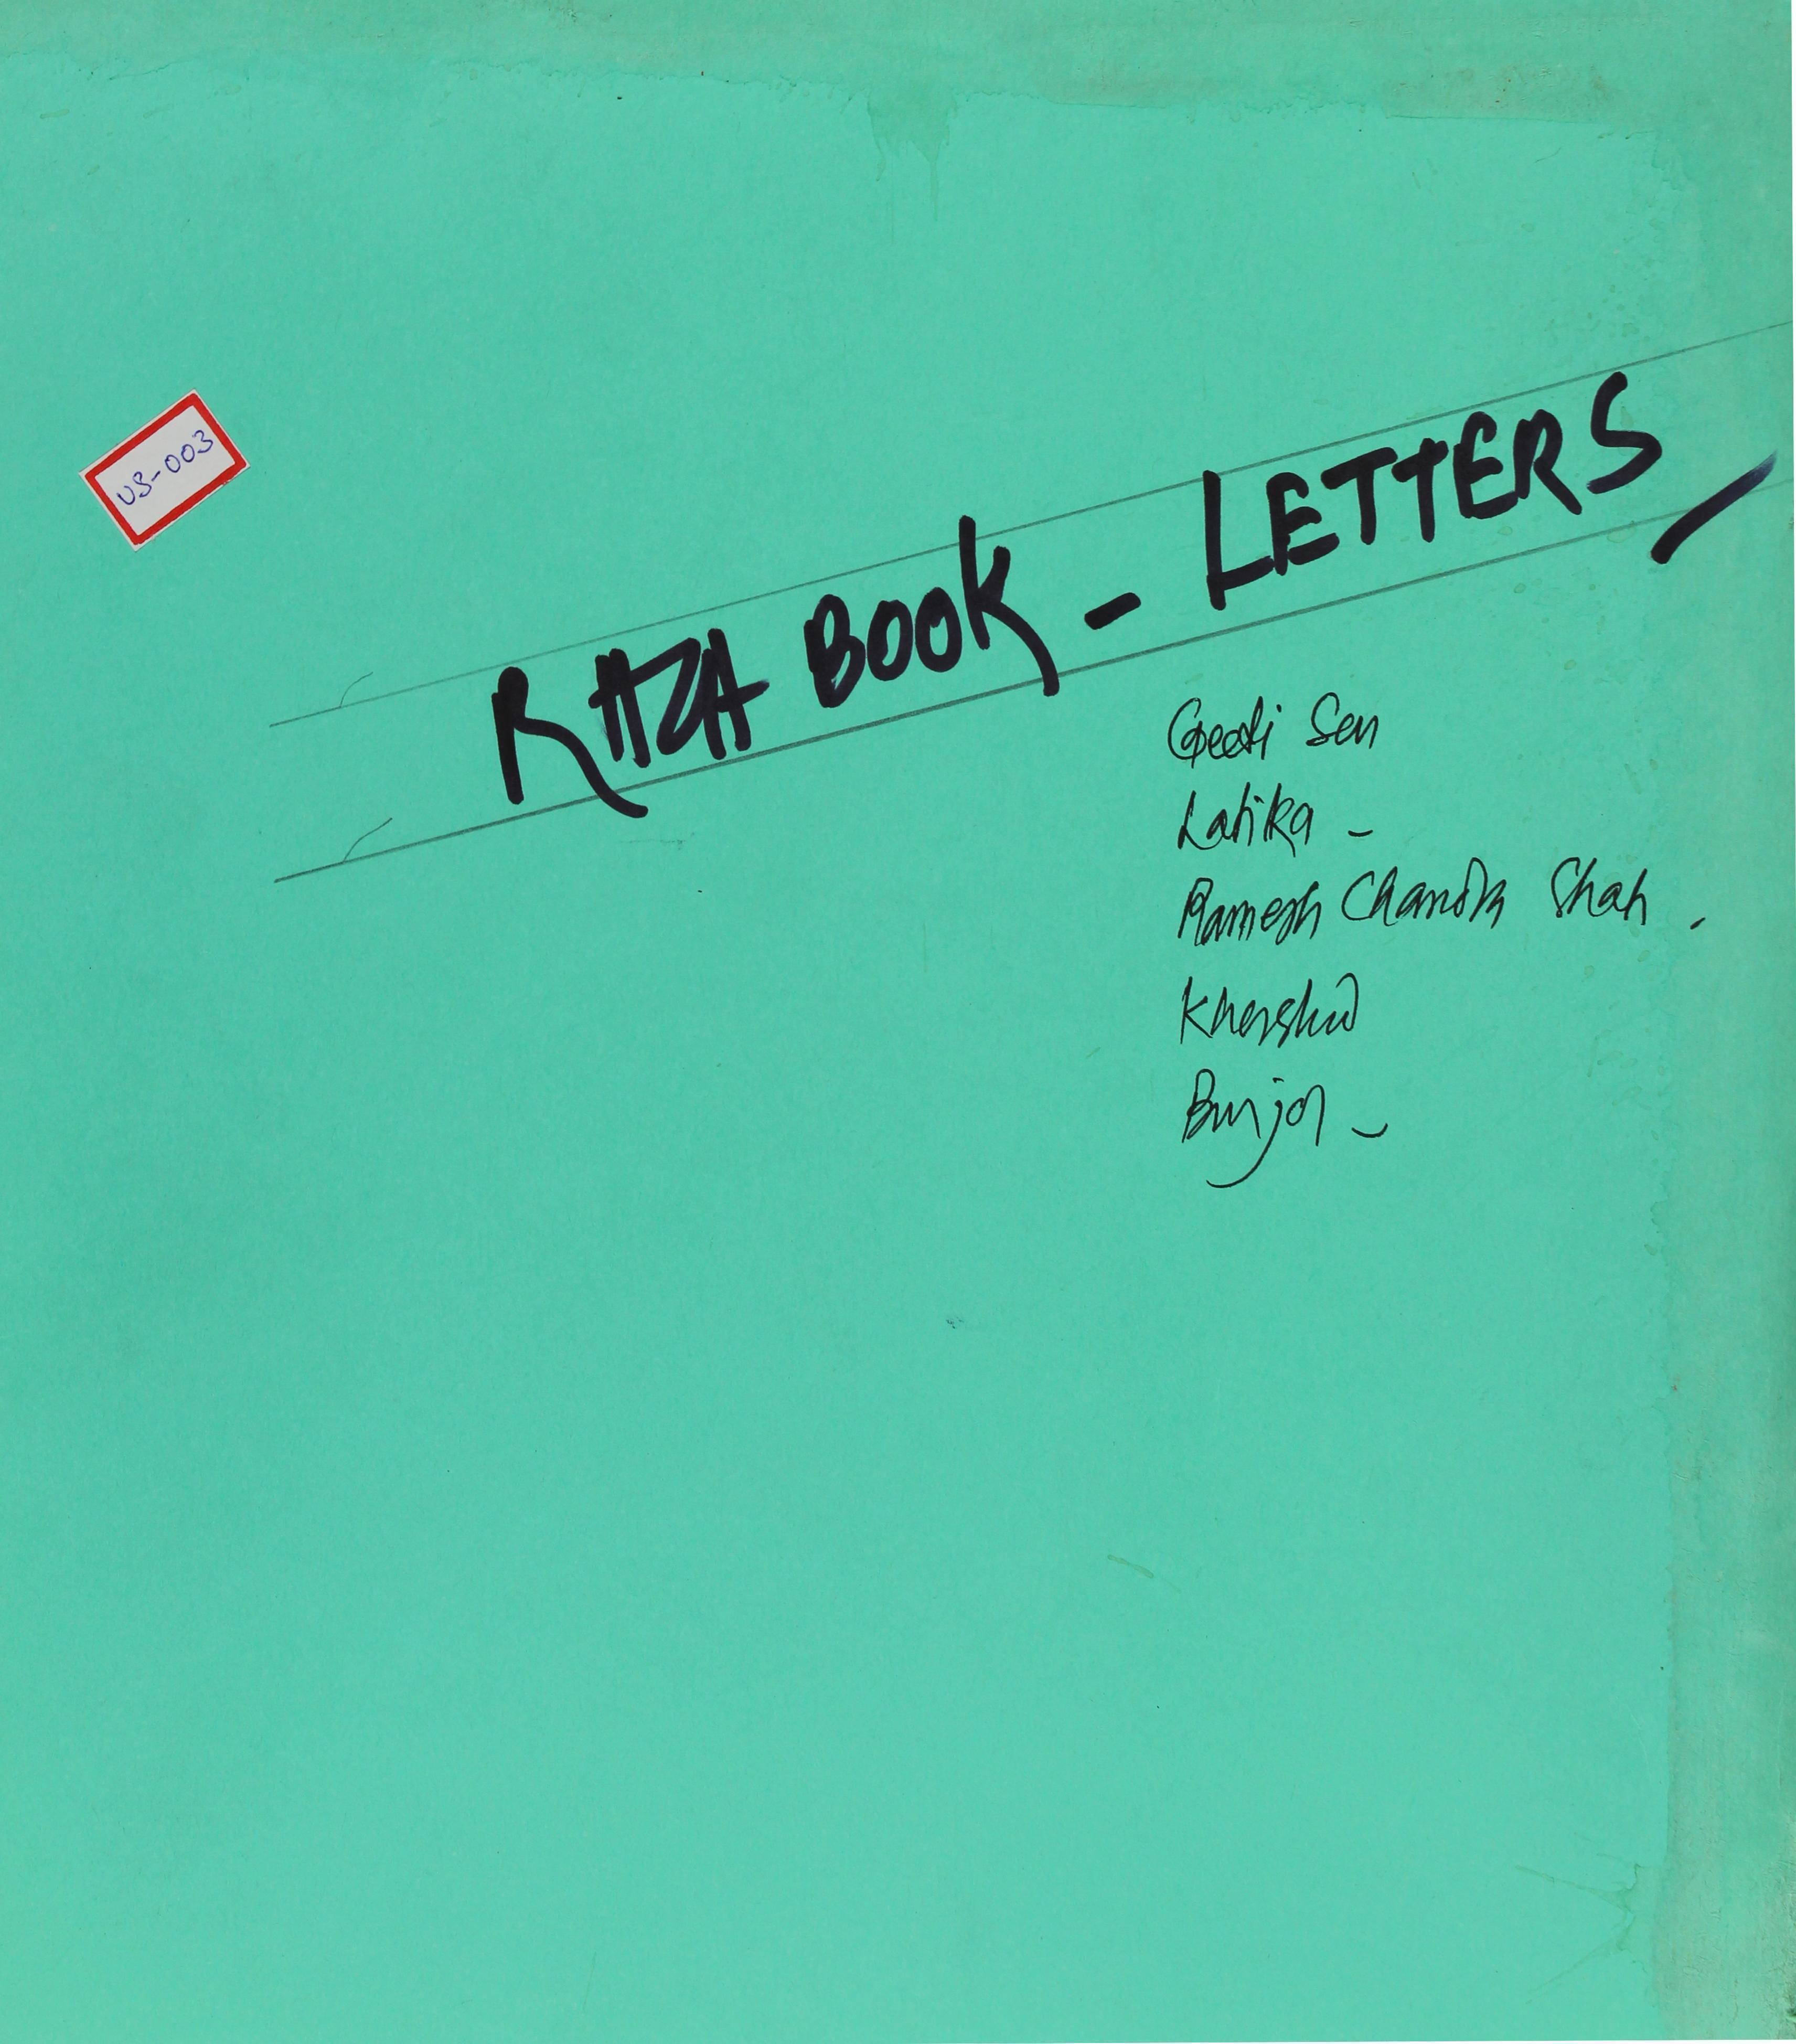 US-003
RAZA BOOK - LETTERS
Geeti Sen
Latika -
Ramesh Chandra Shah -
Khorshid
Burjor -